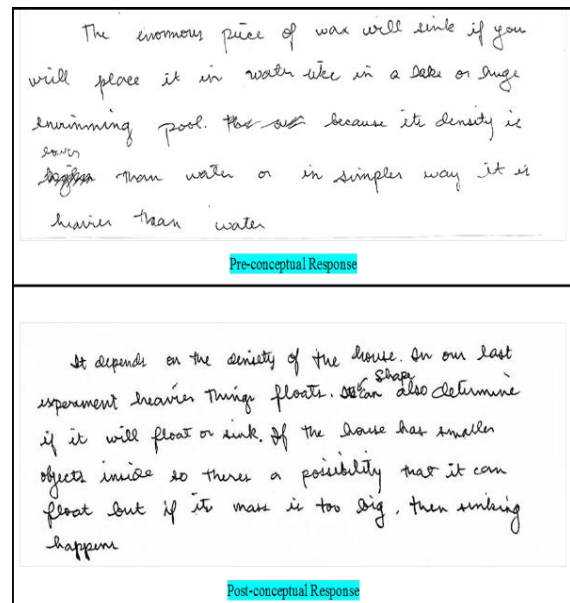 The enormous piece of wax will sink if you
will place it in water like in a lake or huge
swimming pool. because its density is
lower
than water or in simpler way it is
heavier than water
Pre-conceptual Response
It depends on the density of the house. In our last
Shape
experiment heavier things floats. can also determine
if it will float or sink. If the house has smaller
objects inside so theres a possibility that it can
float but if its mass is too big, then sinking
happens
Post-conceptual Response